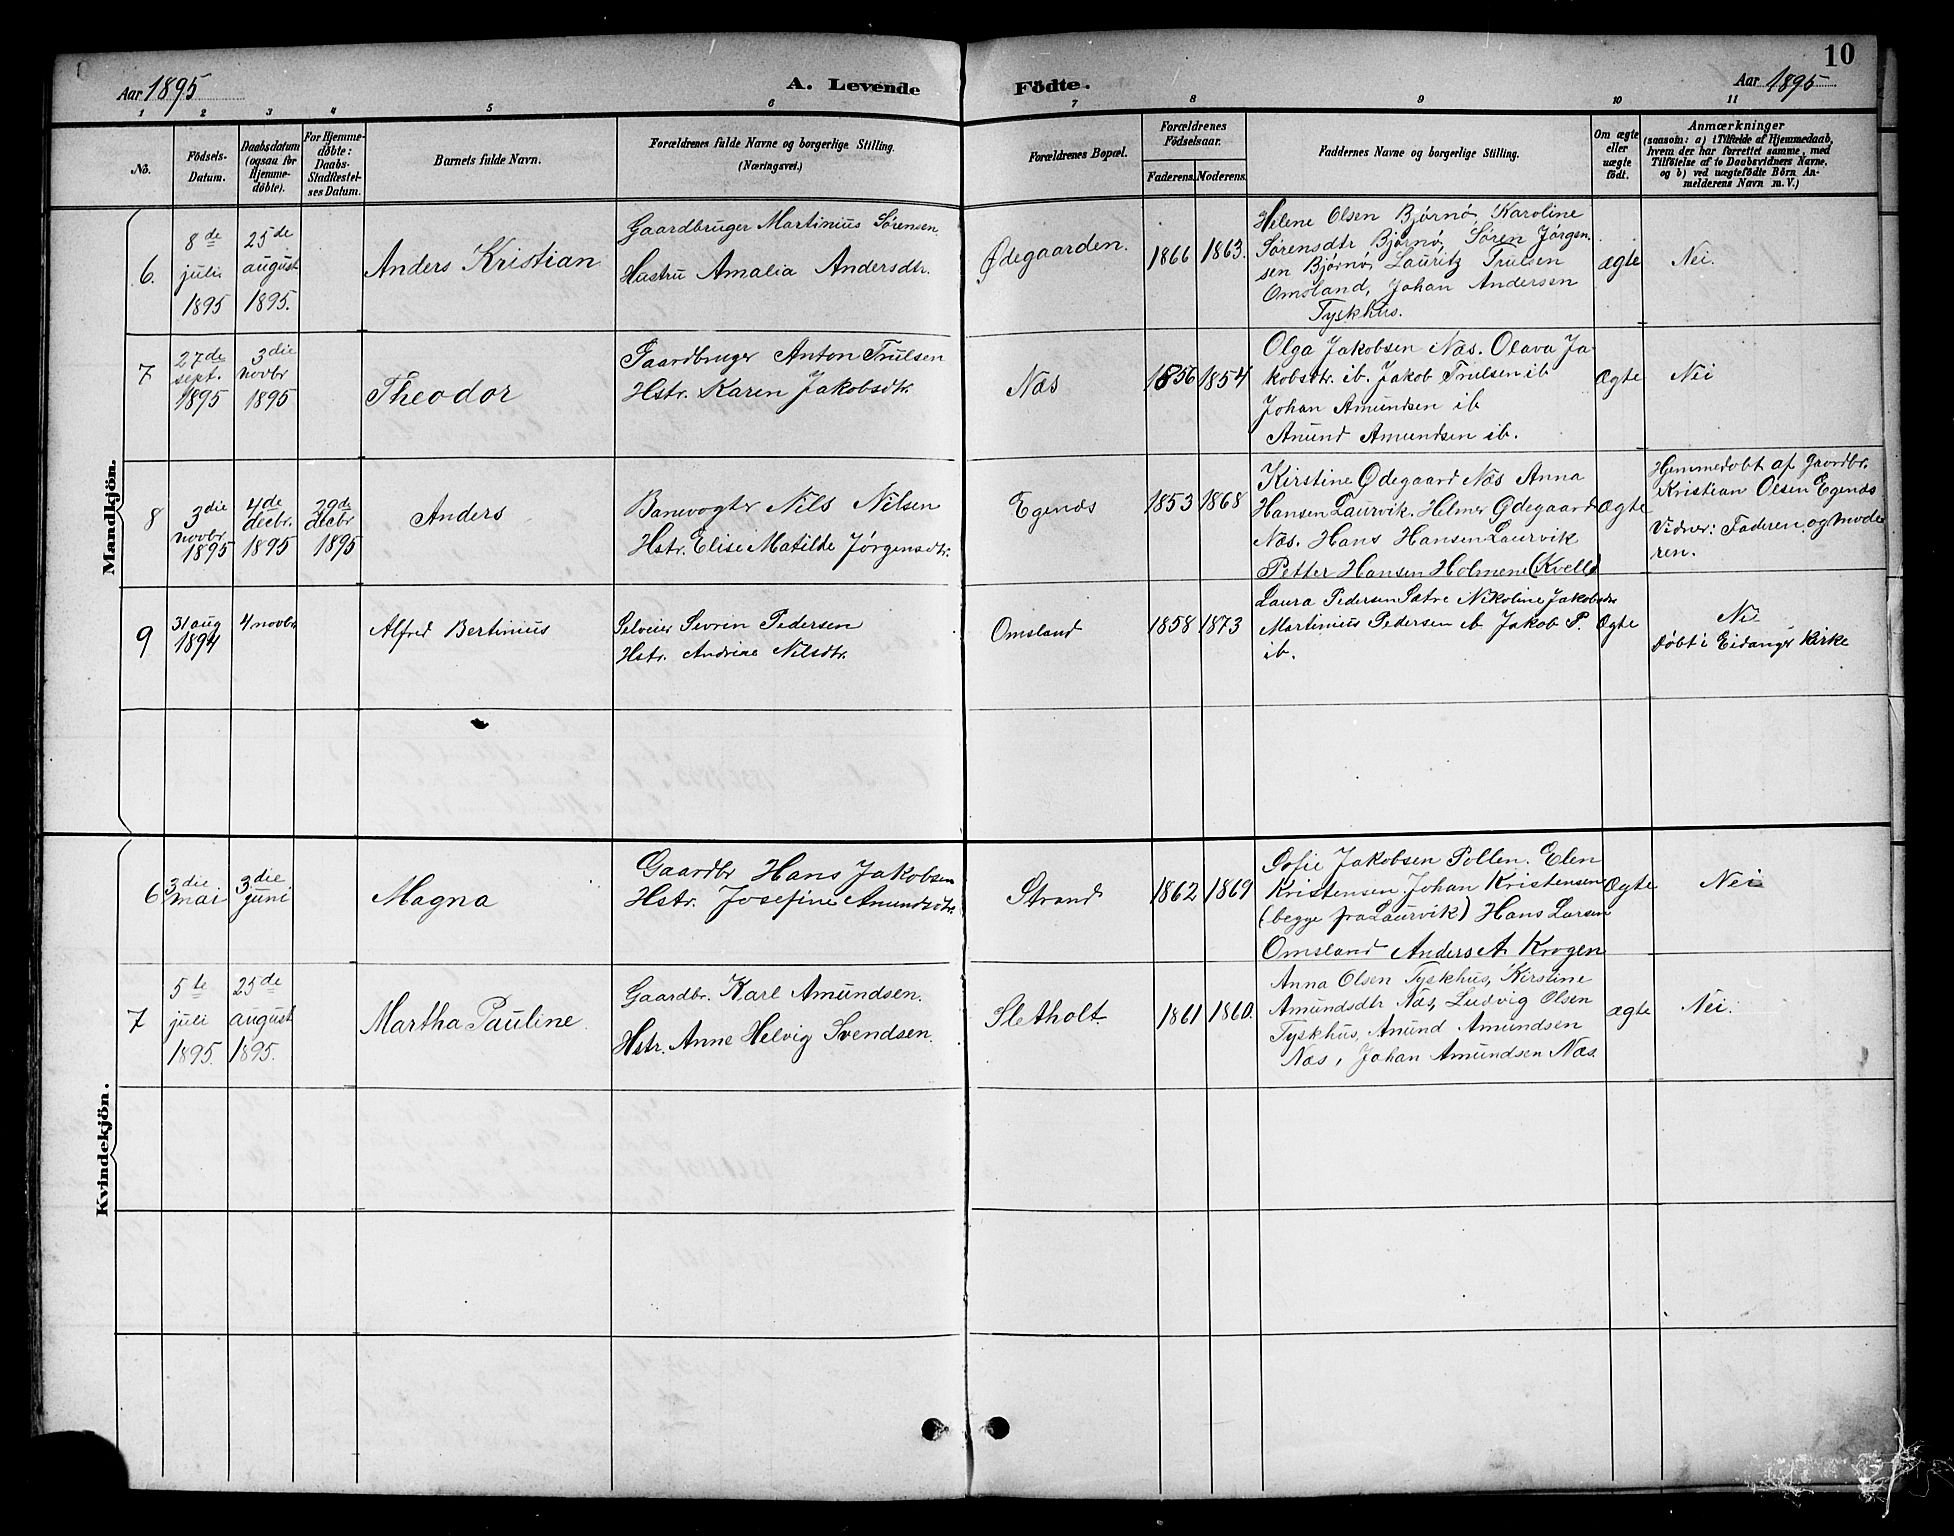 10
Aar 1895
A. Levende Födte.
Aar 1895
1 2 3 4 5 6 7 8 9 10 11
No.
Födsels-
Datum.
Daabsdatum
(ogsaa for
Hjemme-
döbte).
For Hjemme-
döbte:
Daabs-
Stadfestel-
ses Datum.
Barnets fulde Navn.
Forældrenes fulde Navne og borgerlige Stilling.
(Næringsvei.)
Forældrenes Bopæl.
Forældrenes
Födselsaar.
Faderens. Moderens.
Faddernes Navne og borgerlige Stilling.
Om ægte
eller
uægte
födt.
Anmærkninger
(saasom: a) i Tilfælde af Hjemmedaab,
hvem der har forrettet samme, med
Tilföielse af to Daabsvidners Navne,
og b) ved uægtefödte Börn An-
melderens Navn m. V.)
Mandkjön.
6.
8de
juli
1895
25de
august
1895.
Anders Kristian
Gaardbruger Martinius Sørensen
Hustru Amalia Andersdtr.
Ødegaarden.
1866 1863.
Helene Olsen Bjørnø, Karoline
Sørensdtr Bjørnø, Søren Jørgen-
sen Bjørnø, Lauritz Trulsen
Omsland, Johan Andersen
Tyskhus.
ægte
Nei.
7
27de
sept.
1895
3die
novbr
1895
Theodor
Gaardbruger Anton Trulsen
Hstr. Karen Jakobsdtr.
Næs
1856 1854
Olga Jakobsen Næs. Olava Ja-
kobsdtr. ib. Jakob Trulsen ib
Johan Amundsen ib
Anund Amundsen ib.
Ægte
Nei
8
3die
novbr.
1895
4de
decbr.
1895
29de
decbr
1895
Anders
Banevogter Nils Nilsen
Hstr. Elise Matilde Jørgensdtr.
Egenæs
1853 1868
Kirstine Ødegaard Næs Anna
Hansen Laurvik. Helmer Ødegaard
Næs. Hans Hansen Laurvik
Petter Hansen Holmene (Kvelle)
Ægte
Hjemmedøbt af Gaardbr.
Kristian Olsen Egenæs
Vidner: Faderen og mode
ren.
9
31 aug
1894
4 novbr
Alfred Bertinius
Selveier Sevrin Pedersen
Hstr. Andrine Nilsdtr.
Omsland
1858 1873
Laura Pedersen Sætre Nikoline Jakobsdtr
Martinius Pedersen ib Jakob P.
ib.
Ægte
Nei
Døbt i Eidanger Kirke
Kvindekjön.
6
3die
mai
3die
juni
Magna
Gaardbr Hans Jakobsen
Hstr. Josefine Amundsdtr.
Strand
1862 1869
Sofie Jakobsen Pollen. Elen
Kristensen Johan Kristensen
(begge fra Laurvik) Hans Larsen
Omsland Anders A. Krogen
Ægte
Nei
7
5te
juli
1895.
25de
august
1895.
Martha Pauline
Gaardbr. Karl Amundsen.
Hstr. Anne Helvig Svendsen.
Sletholt.
1861 1860.
Anna Olsen Tyskhus, Kirstine
Amundsdtr Næs, Ludvig Olsen
Tyskhus, Amund Amundsen
Næs, Johan Amundsen Næs.
ægte
Nei.